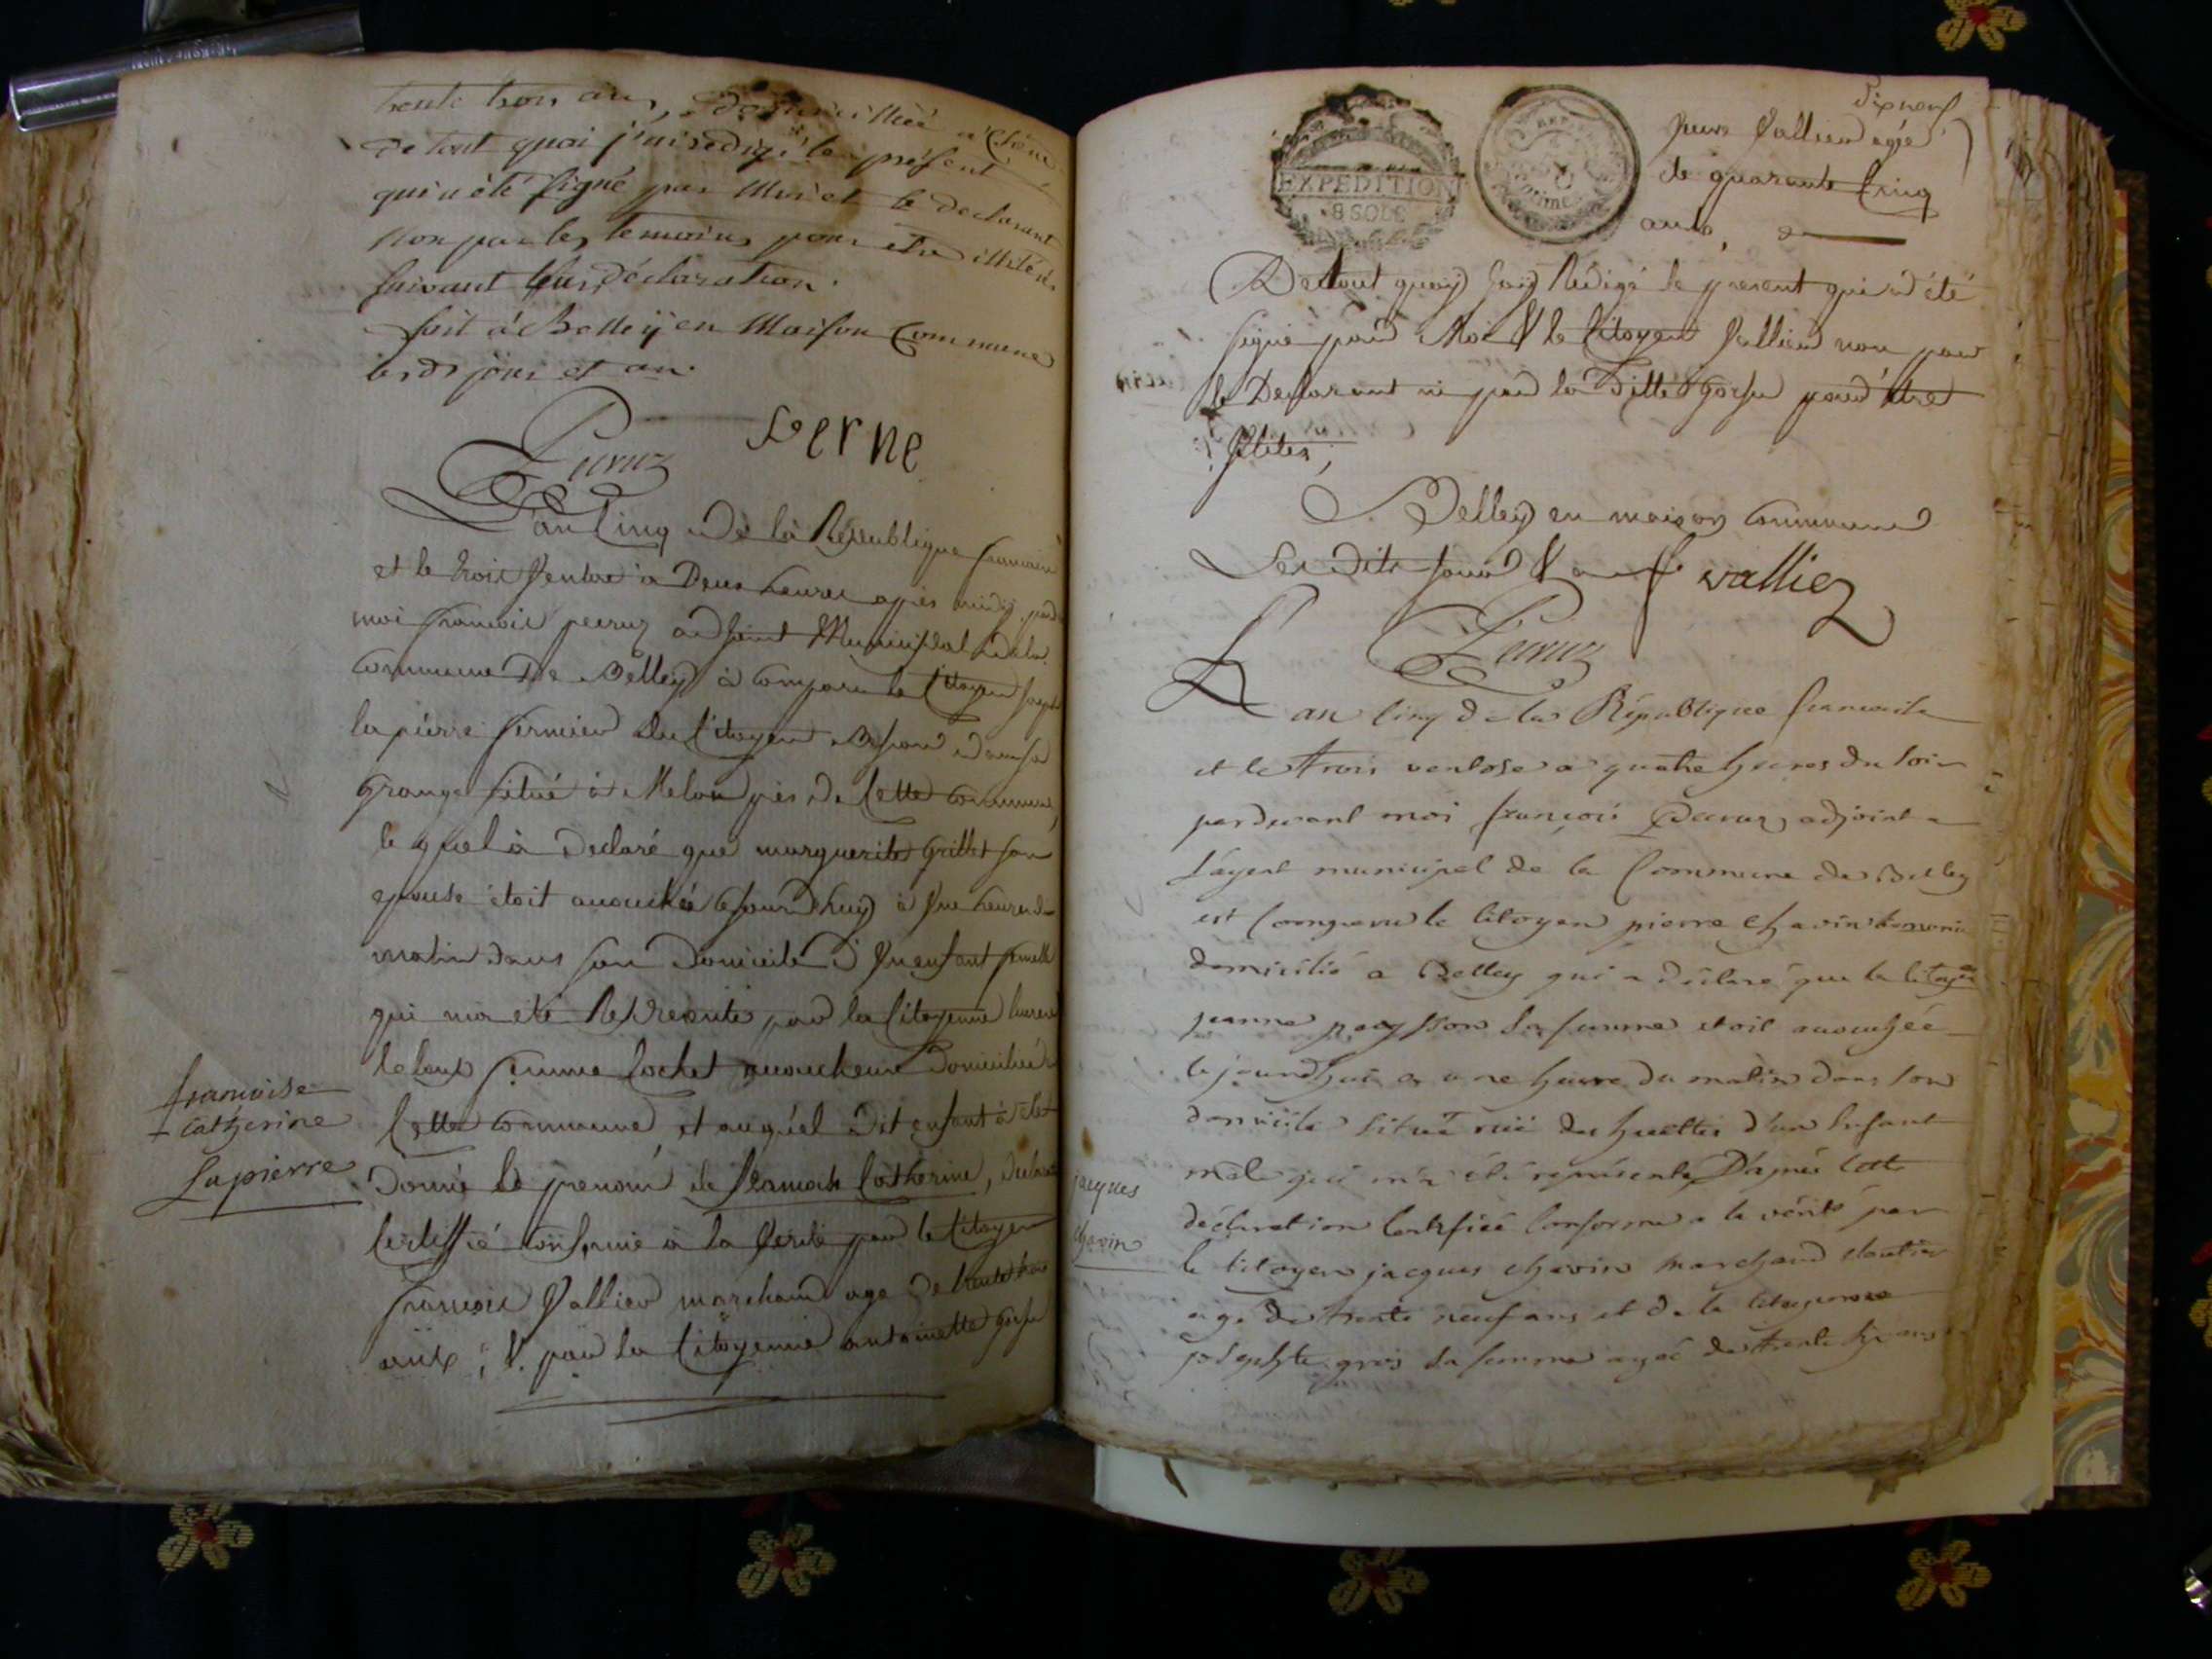 trente trois ans, domiciliée à
De tout quoi j'ai redigé le présent
qui a été signé par Moi et le declarant
Non par les temoins pour etre illiterés
suivant leur déclaration.
fait à Belleÿ en Maison Commune
lesds jour et an.
Peruz Verne
L'an Cinq De la République francaise
et le trois Ventose à Deux heures après midÿ pard
moi francois peruz adjoint Municipal de la
Commune De Belleÿ à comparu le Citoyen joseph
la pierre fermier du Citoyen
Grange situé à Melon près de Cette Commune,
le quel à Declaré que marguerite Grillet son
epouse étoit accouchée cejourdhuÿ à Une heure du
matin dans son Domicile D'Un enfant femelle
qui m'a été Représenté par la Citoyenne
femme Cochet accoucheuse Domiciliée
Cette Commune, et auquel Dit enfant à été
Donné le prenom de francoise Catherine,
Certiffié conforme à la Vérité par le Citoyen
francois Vallier marchand age de trente trois
ans; & par la Citoyenne antoinette
francoise
Catherine
Lapierre
Dixneuf
Vallier agée
de quarante Cinq
ants,
EXPEDITION
8 SOLS
De tout quoÿ Jaÿ Rédigé le present qui à été
signé par Moi & le Citoyen Vallier non par
le Declarant ni par la Ditte pour être
Illiter,
Belleÿ en maison Commune
Les Dits jour & an f vallier
Peruz
L'an cinq de la République francaise
et le trois ventose a quatre heures du soir
pardevant moi françois Peruz adjoint a
L'agent municipal de la Commune de Belley
est comparu le citoyen pierre chavin
domicilié a Belley qui a déclaré que la citoyen
jeanne peysson sa femme etoit accouchée
cejourdhui a une heure du matin dans son
domicile situé rüe des d'un Enfant
male qui m'a été représenté, D'après cette
déclaration Certifiée conforme a la vérité par
le citoyen jacques chavin marchand cloutier
agé de trente neuf ans et de la citoyenne
josephte gros sa femme agée de trente
jacques
chavin